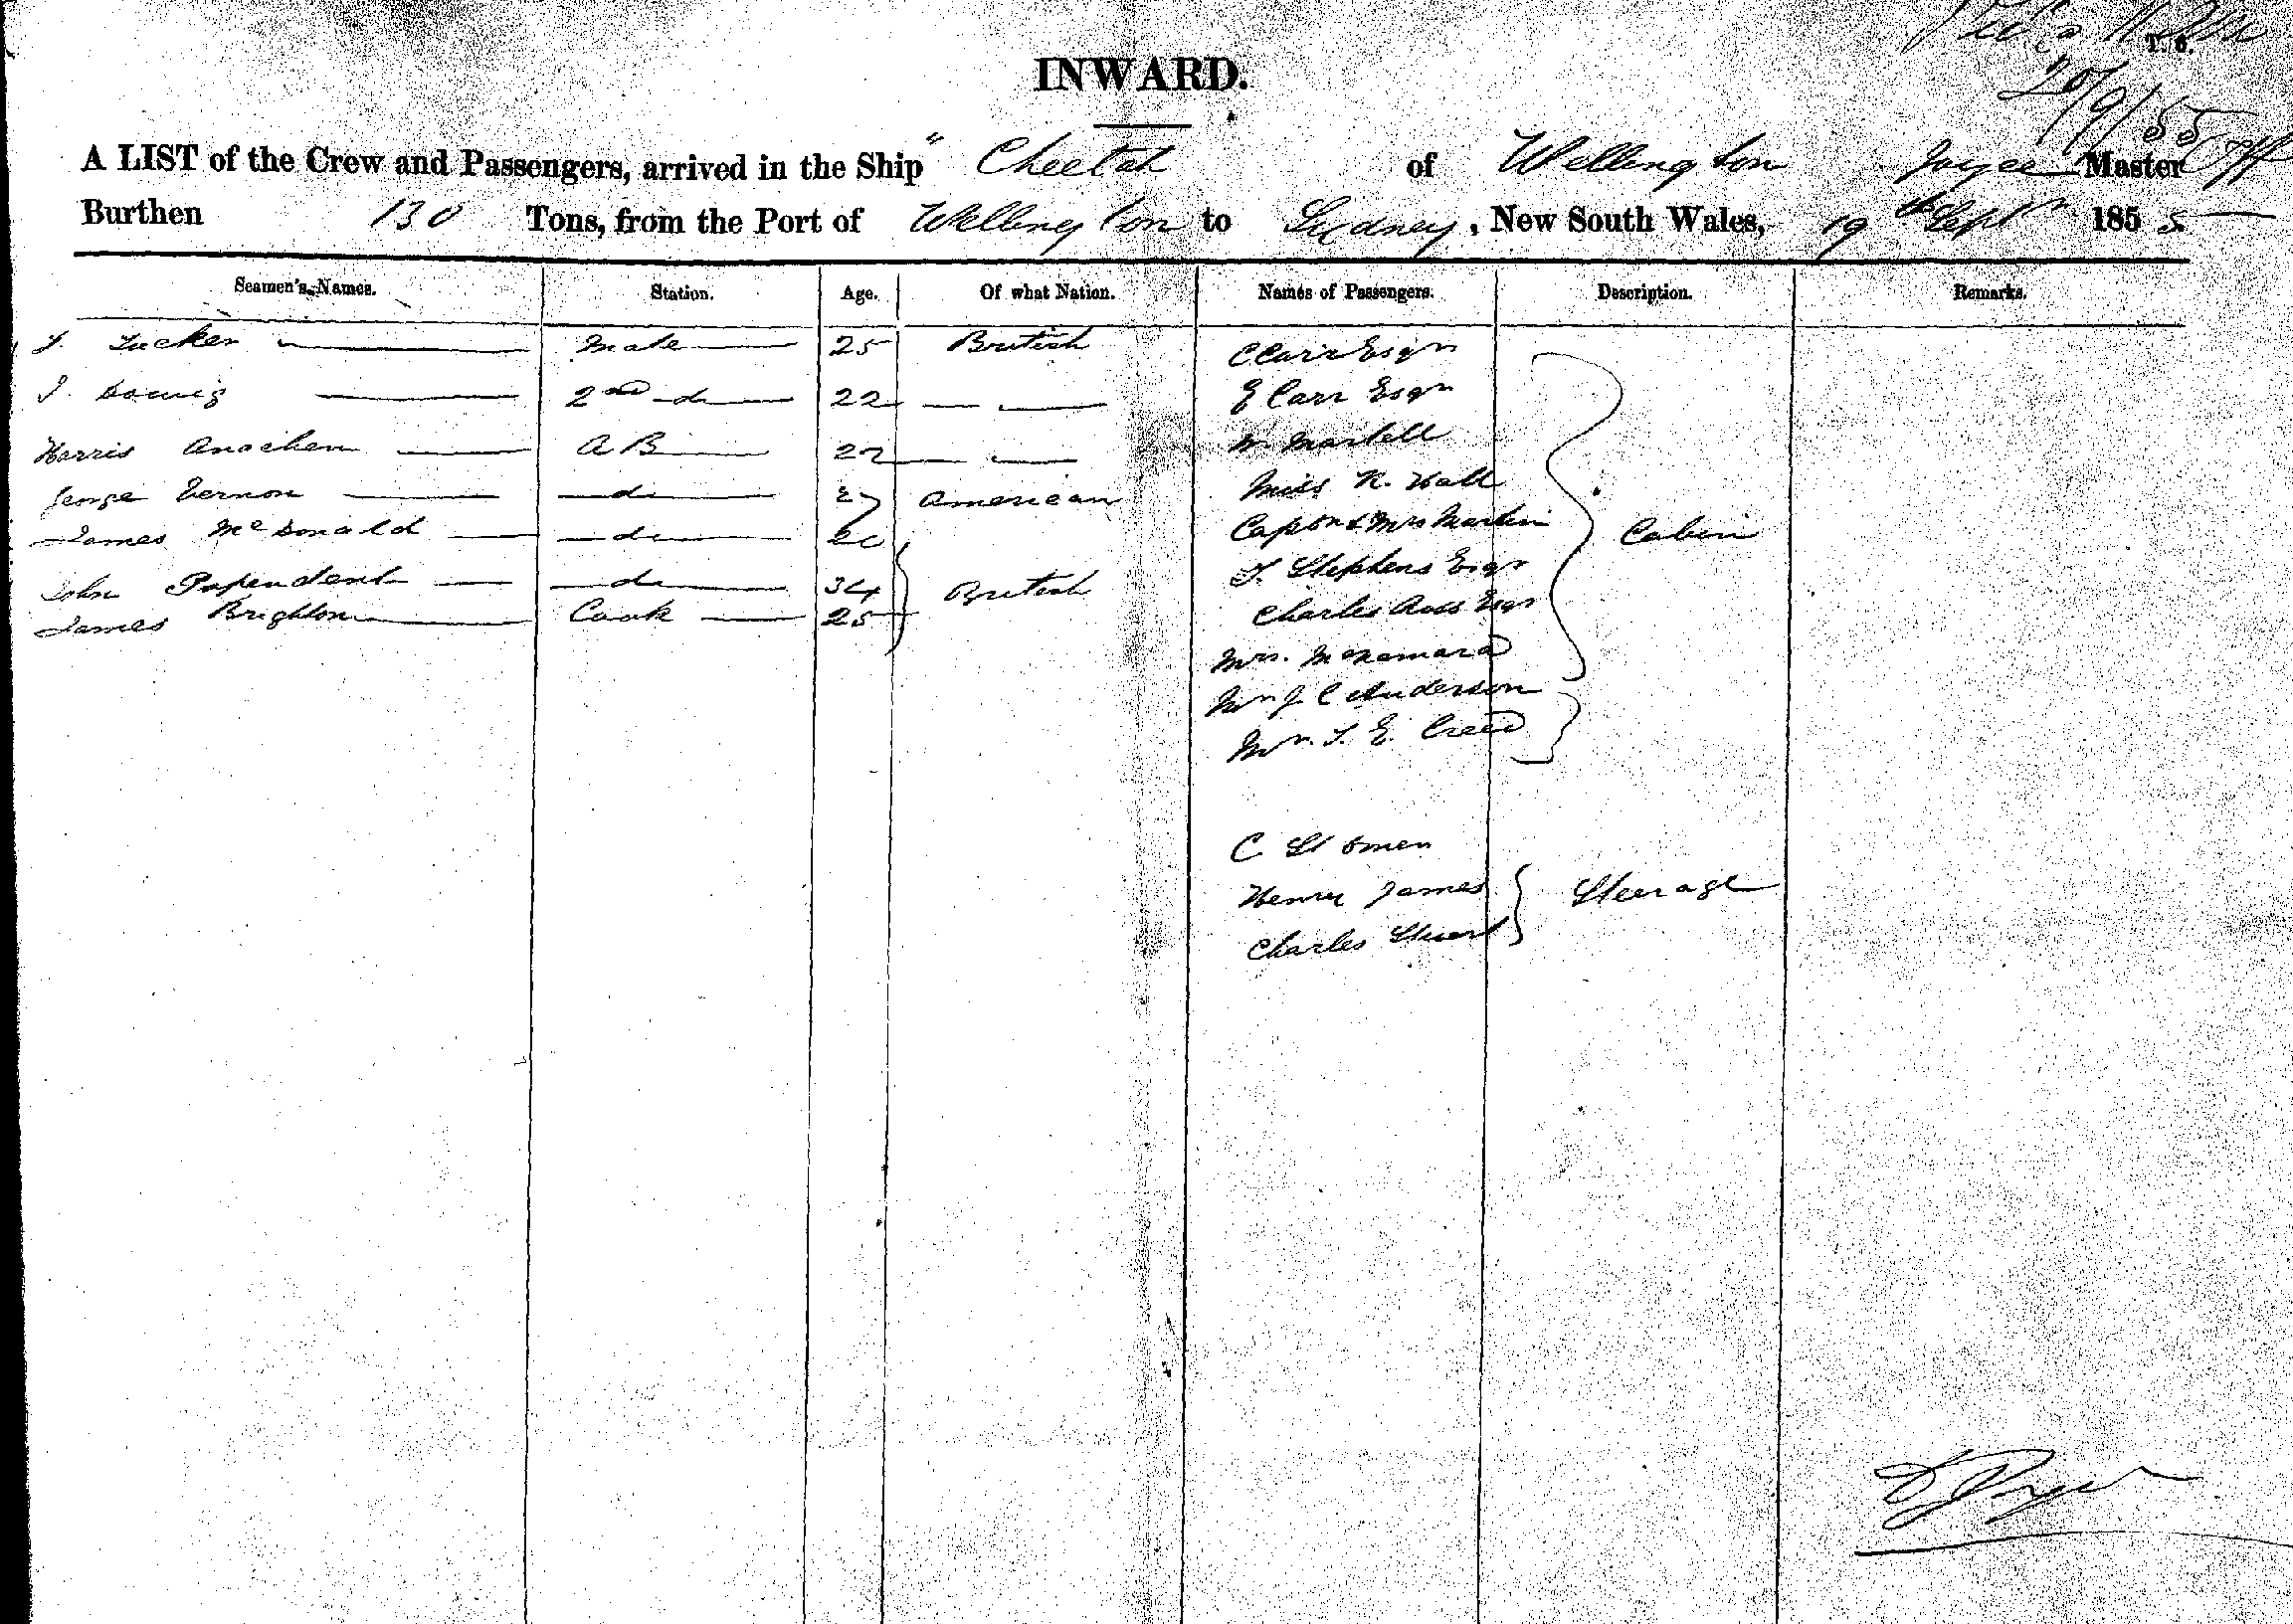 INWARD.
20/9/55
A LIST of the Crew and Passengers, arrived in the Ship "Cheetah of Wellington Joyce Master
Burthen 130 Tons, from the Port of Wellington to Sydney, New South Wales, 19th Septr 1855
Seamen's Names. Station. Age. Of what Nation. Names of Passengers. Description. Remarks.
Tucker Mate 25 British C Carr Esqr
2nd do 22 — — E Carr Esqr
Harris A B 22 — — Martell
George Vernon do 27 American Miss N. Hall
James McDonald do Captn & Mrs Martin Cabin
John do 34 British T. Stephens Esqr
James Brighton Cook 25 Charles Ross Esqr
Mrs. McNamara
Mr J. C Anderson
Mr. T. E. Creed
C
Henry James Steerage
Charles Stuart